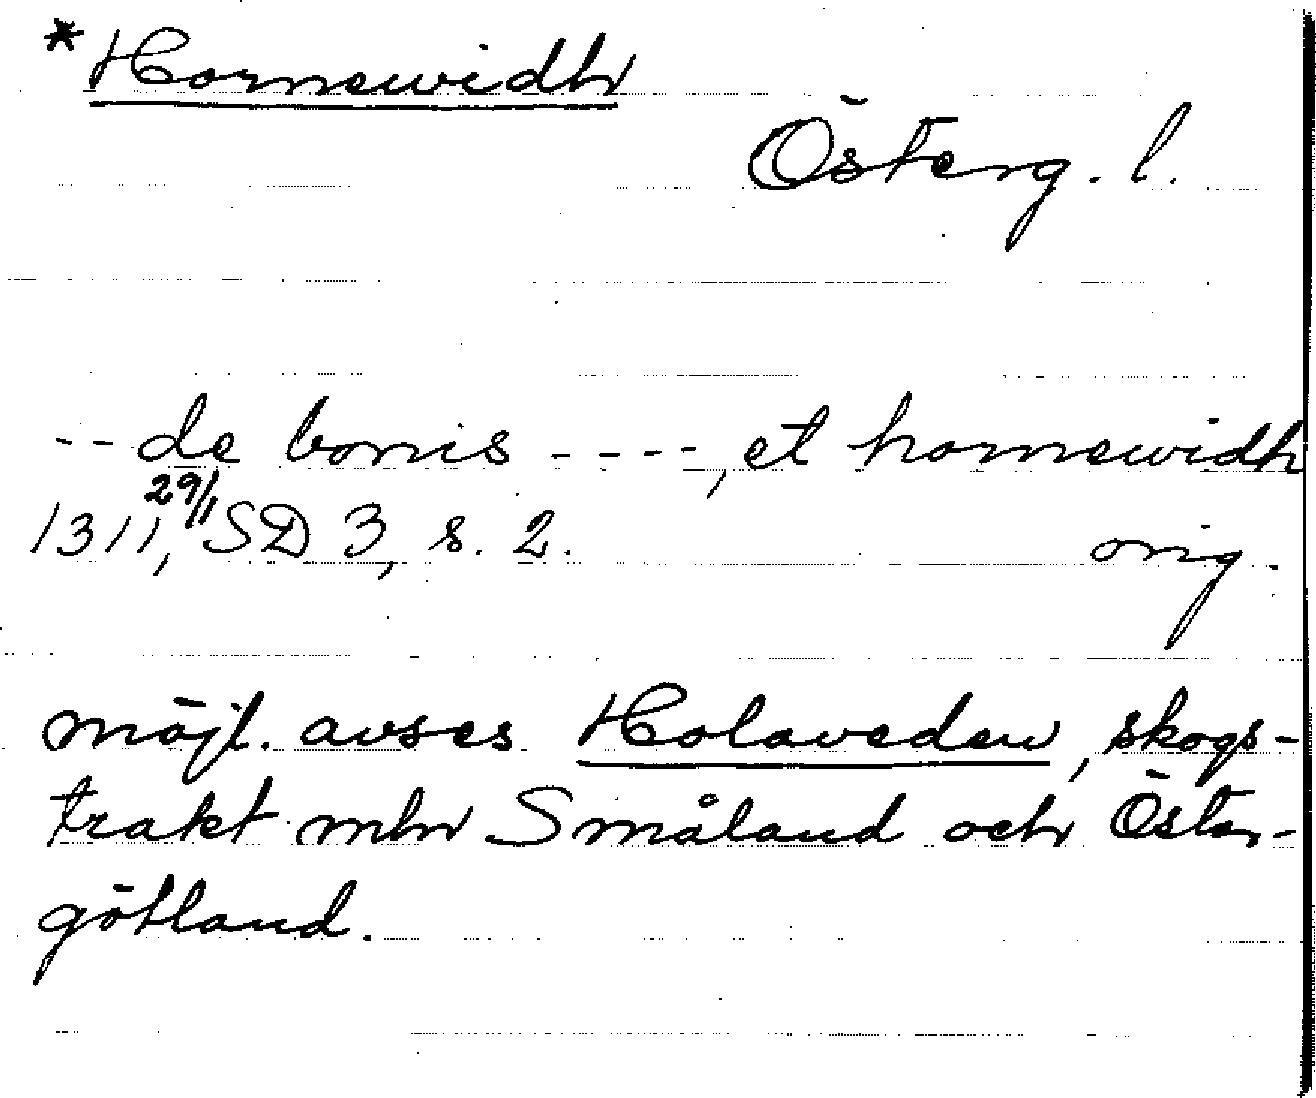 *Hornewidh
Österg. l.
-- de bonis ----, et hornewidh
1311, 29/11 SD 3, s. 2. orig.
möjl. avses Holaveden, skogs-
trakt mln Småland och Öster-
götland.